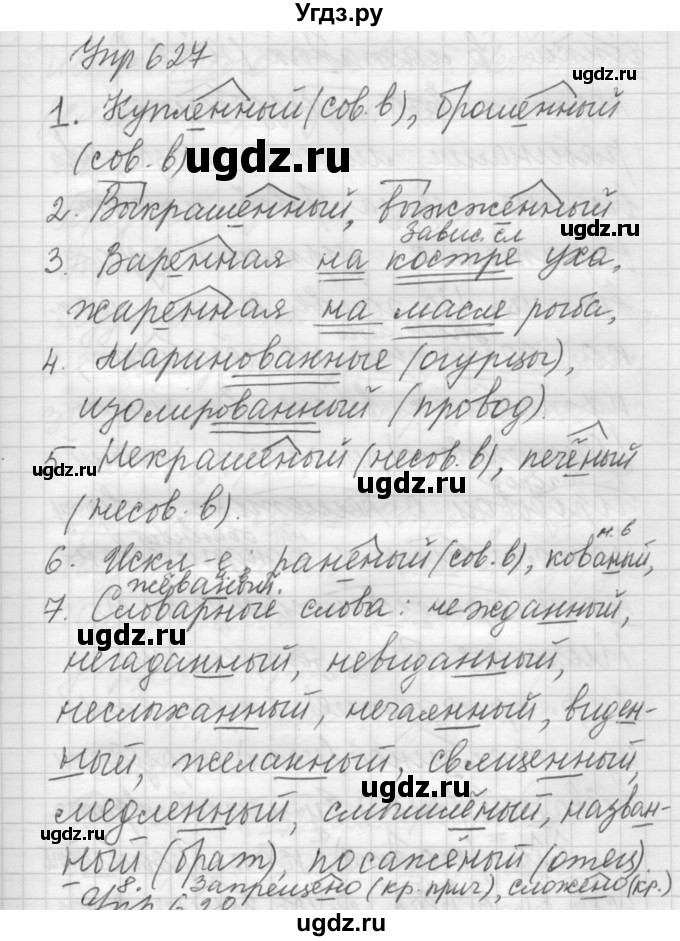 Угдз.ру
Упр 627
ugdz.ru
1. Купленный (сов. в), брошенный
(сов. в)
ugdz.ru
2. Выкрашенный, выжженный
ugdz.ru
Завис. сл
3. Варенная на костре уха,
жаренная на масле рыба,
4. Маринованные (огурцы),
изолированный (провод).
5. Некрашеный (несов. в), печёный
ugdz.ru
(несов. в).
6. Искл-е: раненый (сов. в), кованый,
н. в
жёваный.
7. Словарные слова: нежданный,
ugdz.ru
негаданный, невиданный,
неслыханный, нечаянный, виден-
ный, желанный, священный,
ugdz.ru
медленный, смышлёный, назван-
ный (брат), посажёный (отец).
8. Запрещено (кр. прич), сложено (кр.)
Упр 628
ugdz.ru
ugdz.ru